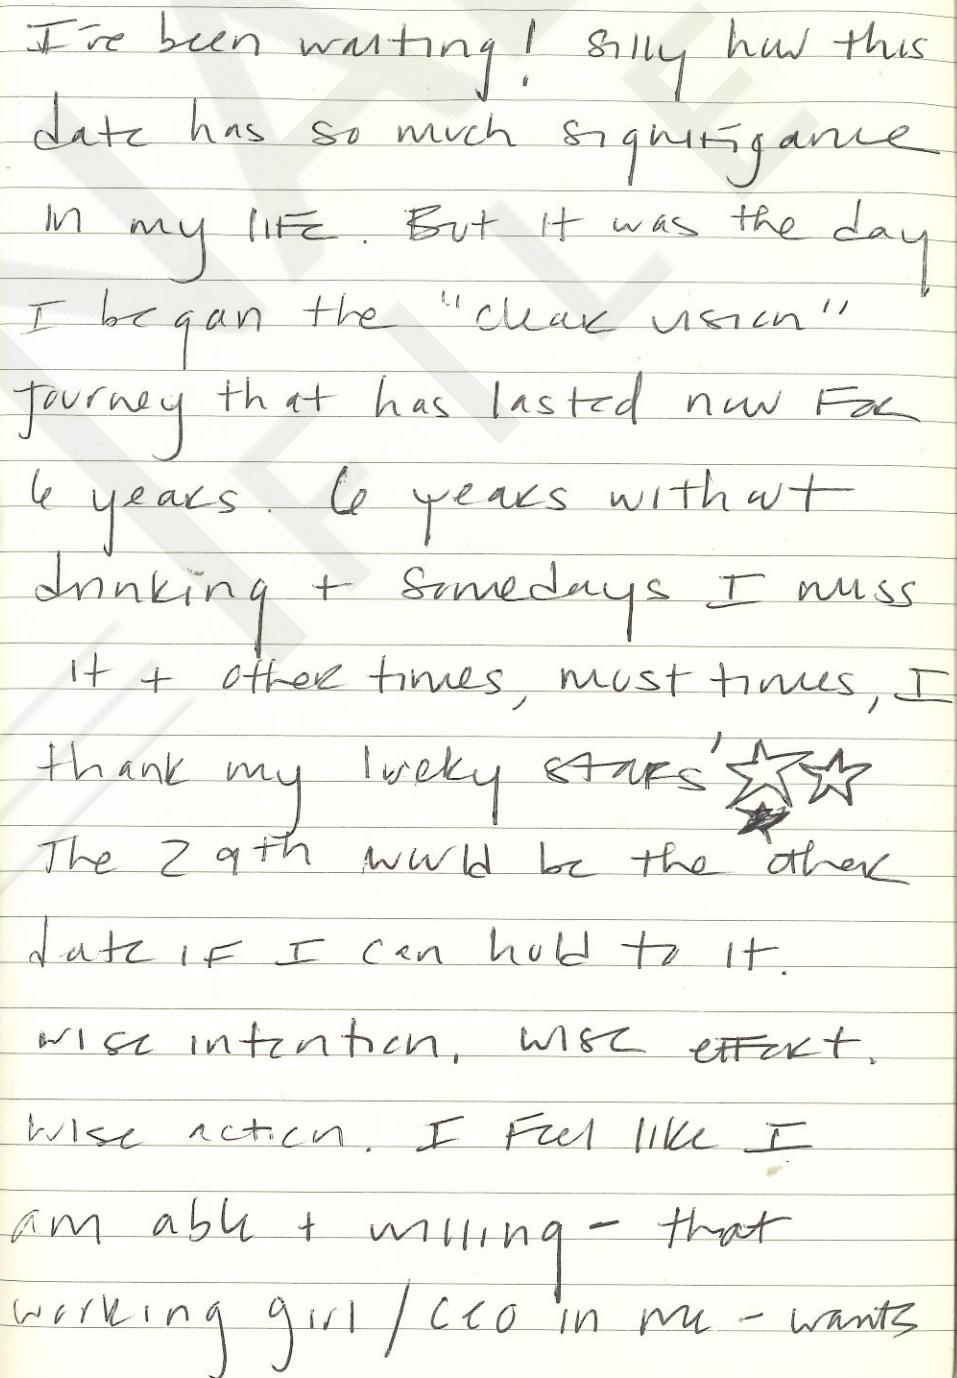 I've been waiting! Silly how this
date has so much signifigance
in my life. But it was the day
I began the "clear vision"
journey that has lasted now for
6 years. 6 years without
drinking + somedays I miss
it + other times, most times, I
thank my lucky stars'
The 29th would be the other
date if I can hold to it.
wise intention, wise effort.
wise action. I feel like I
am able + willing - that
working girl/CEO in me - wants